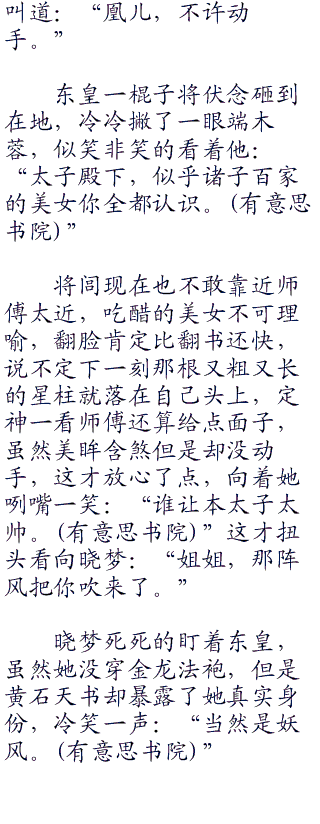 叫道：“凰儿，不许动
手。”
东皇一棍子将伏念砸到
在地，冷冷撇了一眼端木
蓉，似笑非笑的看着他：
“太子殿下，似乎诸子百家
的美女你全都认识。(有意思
书院)”
将闾现在也不敢靠近师
傅太近，吃醋的美女不可理
喻，翻脸肯定比翻书还快，
说不定下一刻那根又粗又长
的星柱就落在自己头上，定
神一看师傅还算给点面子，
虽然美眸含煞但是却没动
手，这才放心了点，向着她
咧嘴一笑：“谁让本太子太
帅。(有意思书院)”这才扭
头看向晓梦：“姐姐，那阵
风把你吹来了。”
晓梦死死的盯着东皇，
虽然她没穿金龙法袍，但是
黄石天书却暴露了她真实身
份，冷笑一声：“当然是妖
风。(有意思书院)”